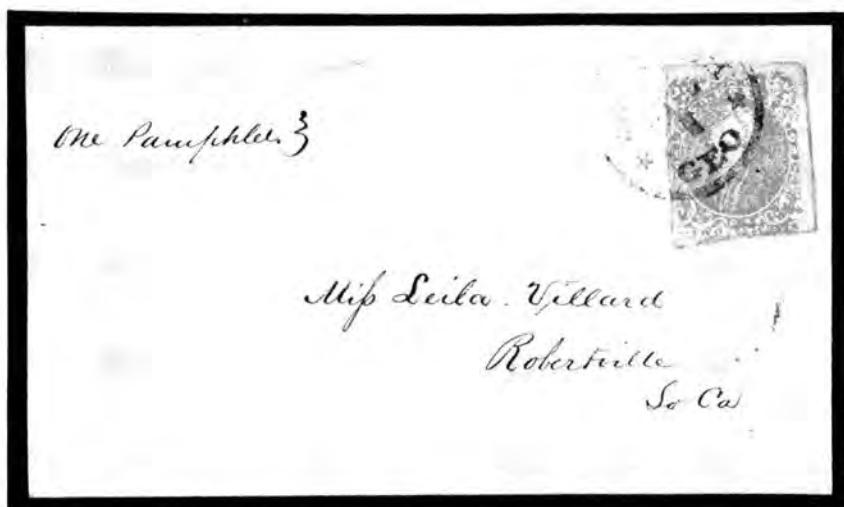 One Pamphlet }
GEO
Miss Leila. Villard
Robertville
So Ca